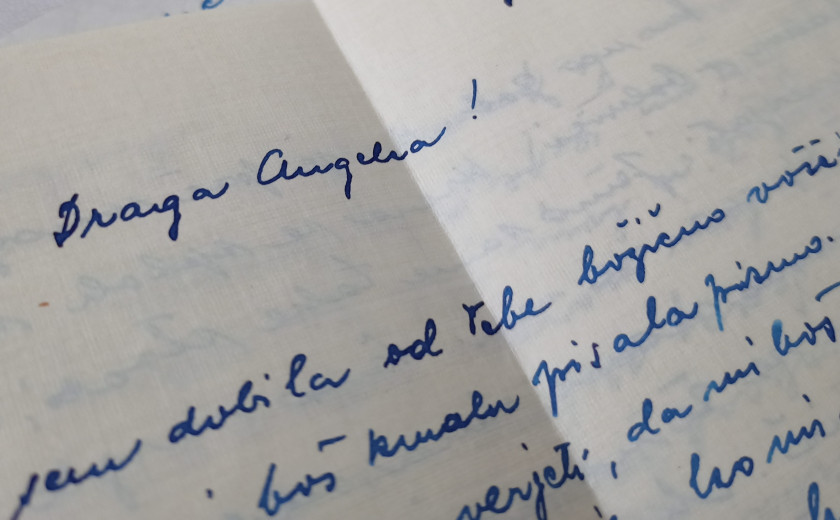 Draga Angela!
sem dobila od tebe božično
boš kmalu pisala pismo.
verjeti, da mi boš
ko mi